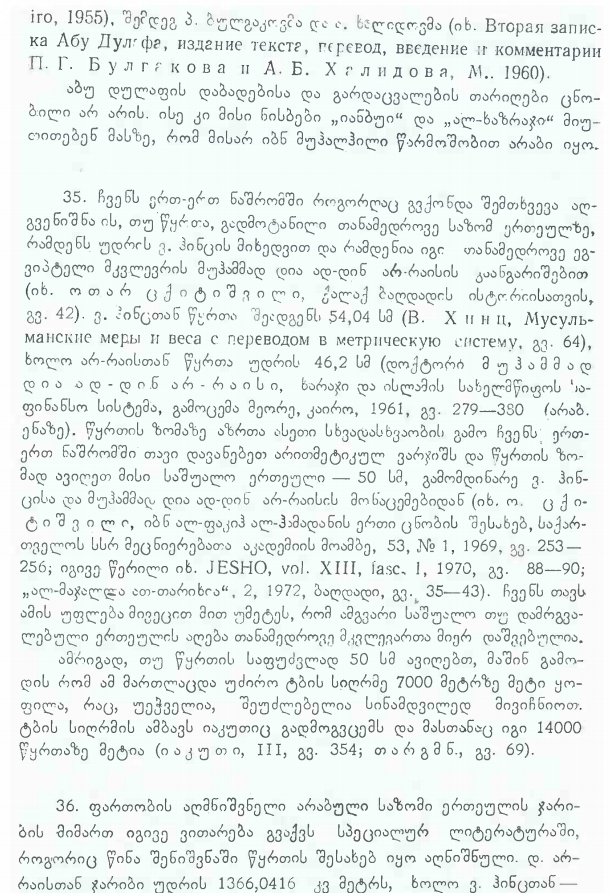 iro, 1955), შემდეგ პ. ბულგაკოვმა და ა. ხალიდოვმა (იხ. Вторая запис-
ка Абу Дулафа, издание текста, перевод, введение и комментарии
П. Г. Булгакова и А. Б. Халидова, М.. 1960).
აბუ დულაფის დაბადებისა და გარდაცვალების თარიღები ცნო-
ბილი არ არის. ისე კი მისი ნისბები „იანბუი“ და „ალ-ხაზრაჯი“ მიუ-
თითებენ მასზე, რომ მისარ იბნ მუჰალჰილი წარმოშობით არაბი იყო.
35. ჩვენს ერთ-ერთ ნაშრომში როგორღაც გვქონდა შემთხვევა აღ-
გვენიშნა ის, თუ წყრთა, გადმოტანილი თანამედროვე საზომ ერთეულზე,
რამდენს უდრის ვ. ჰინცის მიხედვით და რამდენია იგი თანამედროვე ეგ-
ვიპტელი მკვლევრის მუჰამმად დია ად-დინ არ-რაისის კაანგარიშებით
(იხ. ოთარ ცქიტიშვილი, ქალაქ ბაღდადის ისტორიისათვის,
გვ. 42). ვ. ჰინცთან წყრთა შეადგენს 54,04 სმ (В. Хинц, Мусуль-
манские меры и веса с переводом в метрическую систему, გვ. 64),
ხოლო არ-რაისთან წყრთა უდრის 46,2 სმ (დოქტორი მუჰამმად
დია ად-დინ არ-რაისი, ხარაჯი და ისლამის სახელმწიფოს სა-
ფინანსო სისტემა, გამოცემა მეორე, კაირო, 1961, გვ. 279—380 (არაბ.
ენაზე). წყრთის ზომაზე აზრთა ასეთი სხვადასხვაობის გამო ჩვენს ერთ-
ერთ ნაშრომში თავი დავანებეთ არითმეტიკულ ვარჯიშს და წყრთის ზო-
მად ავიღეთ მისი საშუალო ერთეული — 50 სმ, გამომდინარე ვ. ჰინ-
ცისა და მუჰამმად დია ად-დინ არ-რაისის მონაცემებიდან (იხ. ო. ცქი-
ტიშვილი, იბნ ალ-ფაკიჰ ალ-ჰამადანის ერთი ცნობის შესახებ, საქარ-
თველოს სსრ მეცნიერებათა აკადემიის მოამბე, 53, № 1, 1969, გვ. 253—
256; იგივე წერილი იხ. JESHO, vol. XIII, fasc. I, 1970, გვ. 88—90;
„ალ-მაჯალლა ათ-თარიხია“, 2, 1972, ბაღდადი, გვ. 35—43). ჩვენს თავს
ამის უფლება მივეცით მით უმეტეს, რომ ამგვარი საშუალო თუ დამრგვა-
ლებული ერთეულის აღება თანამედროვე მკვლევართა მიერ დაშვებულია.
ამრიგად, თუ წყრთის საფუძვლად 50 სმ ავიღებთ, მაშინ გამო-
დის რომ ამ მართლაცდა უძირო ტბის სიღრმე 7000 მეტრზე მეტი ყო-
ფილა, რაც, უეჭველია, შეუძლებელია სინამდვილედ მივიჩნიოთ.
ტბის სიღრმის ამბავს იაკუთიც გადმოგვცემს და მასთანაც იგი 14000
წყრთაზე მეტია (იაკუთი, III, გვ. 354; თარგმნ., გვ. 69).
36. ფართობის აღმნიშვნელი არაბული საზომი ერთეულის ჯარი-
ბის მიმართ იგივე ვითარება გვაქვს სპეციალურ ლიტერატურაში,
როგორიც წინა შენიშვნაში წყრთის შესახებ იყო აღნიშნული. დ. არ-
რაისთან ჯარიბი უდრის 1366,0416 კვ მეტრს, ხოლო ვ. ჰინცთან —